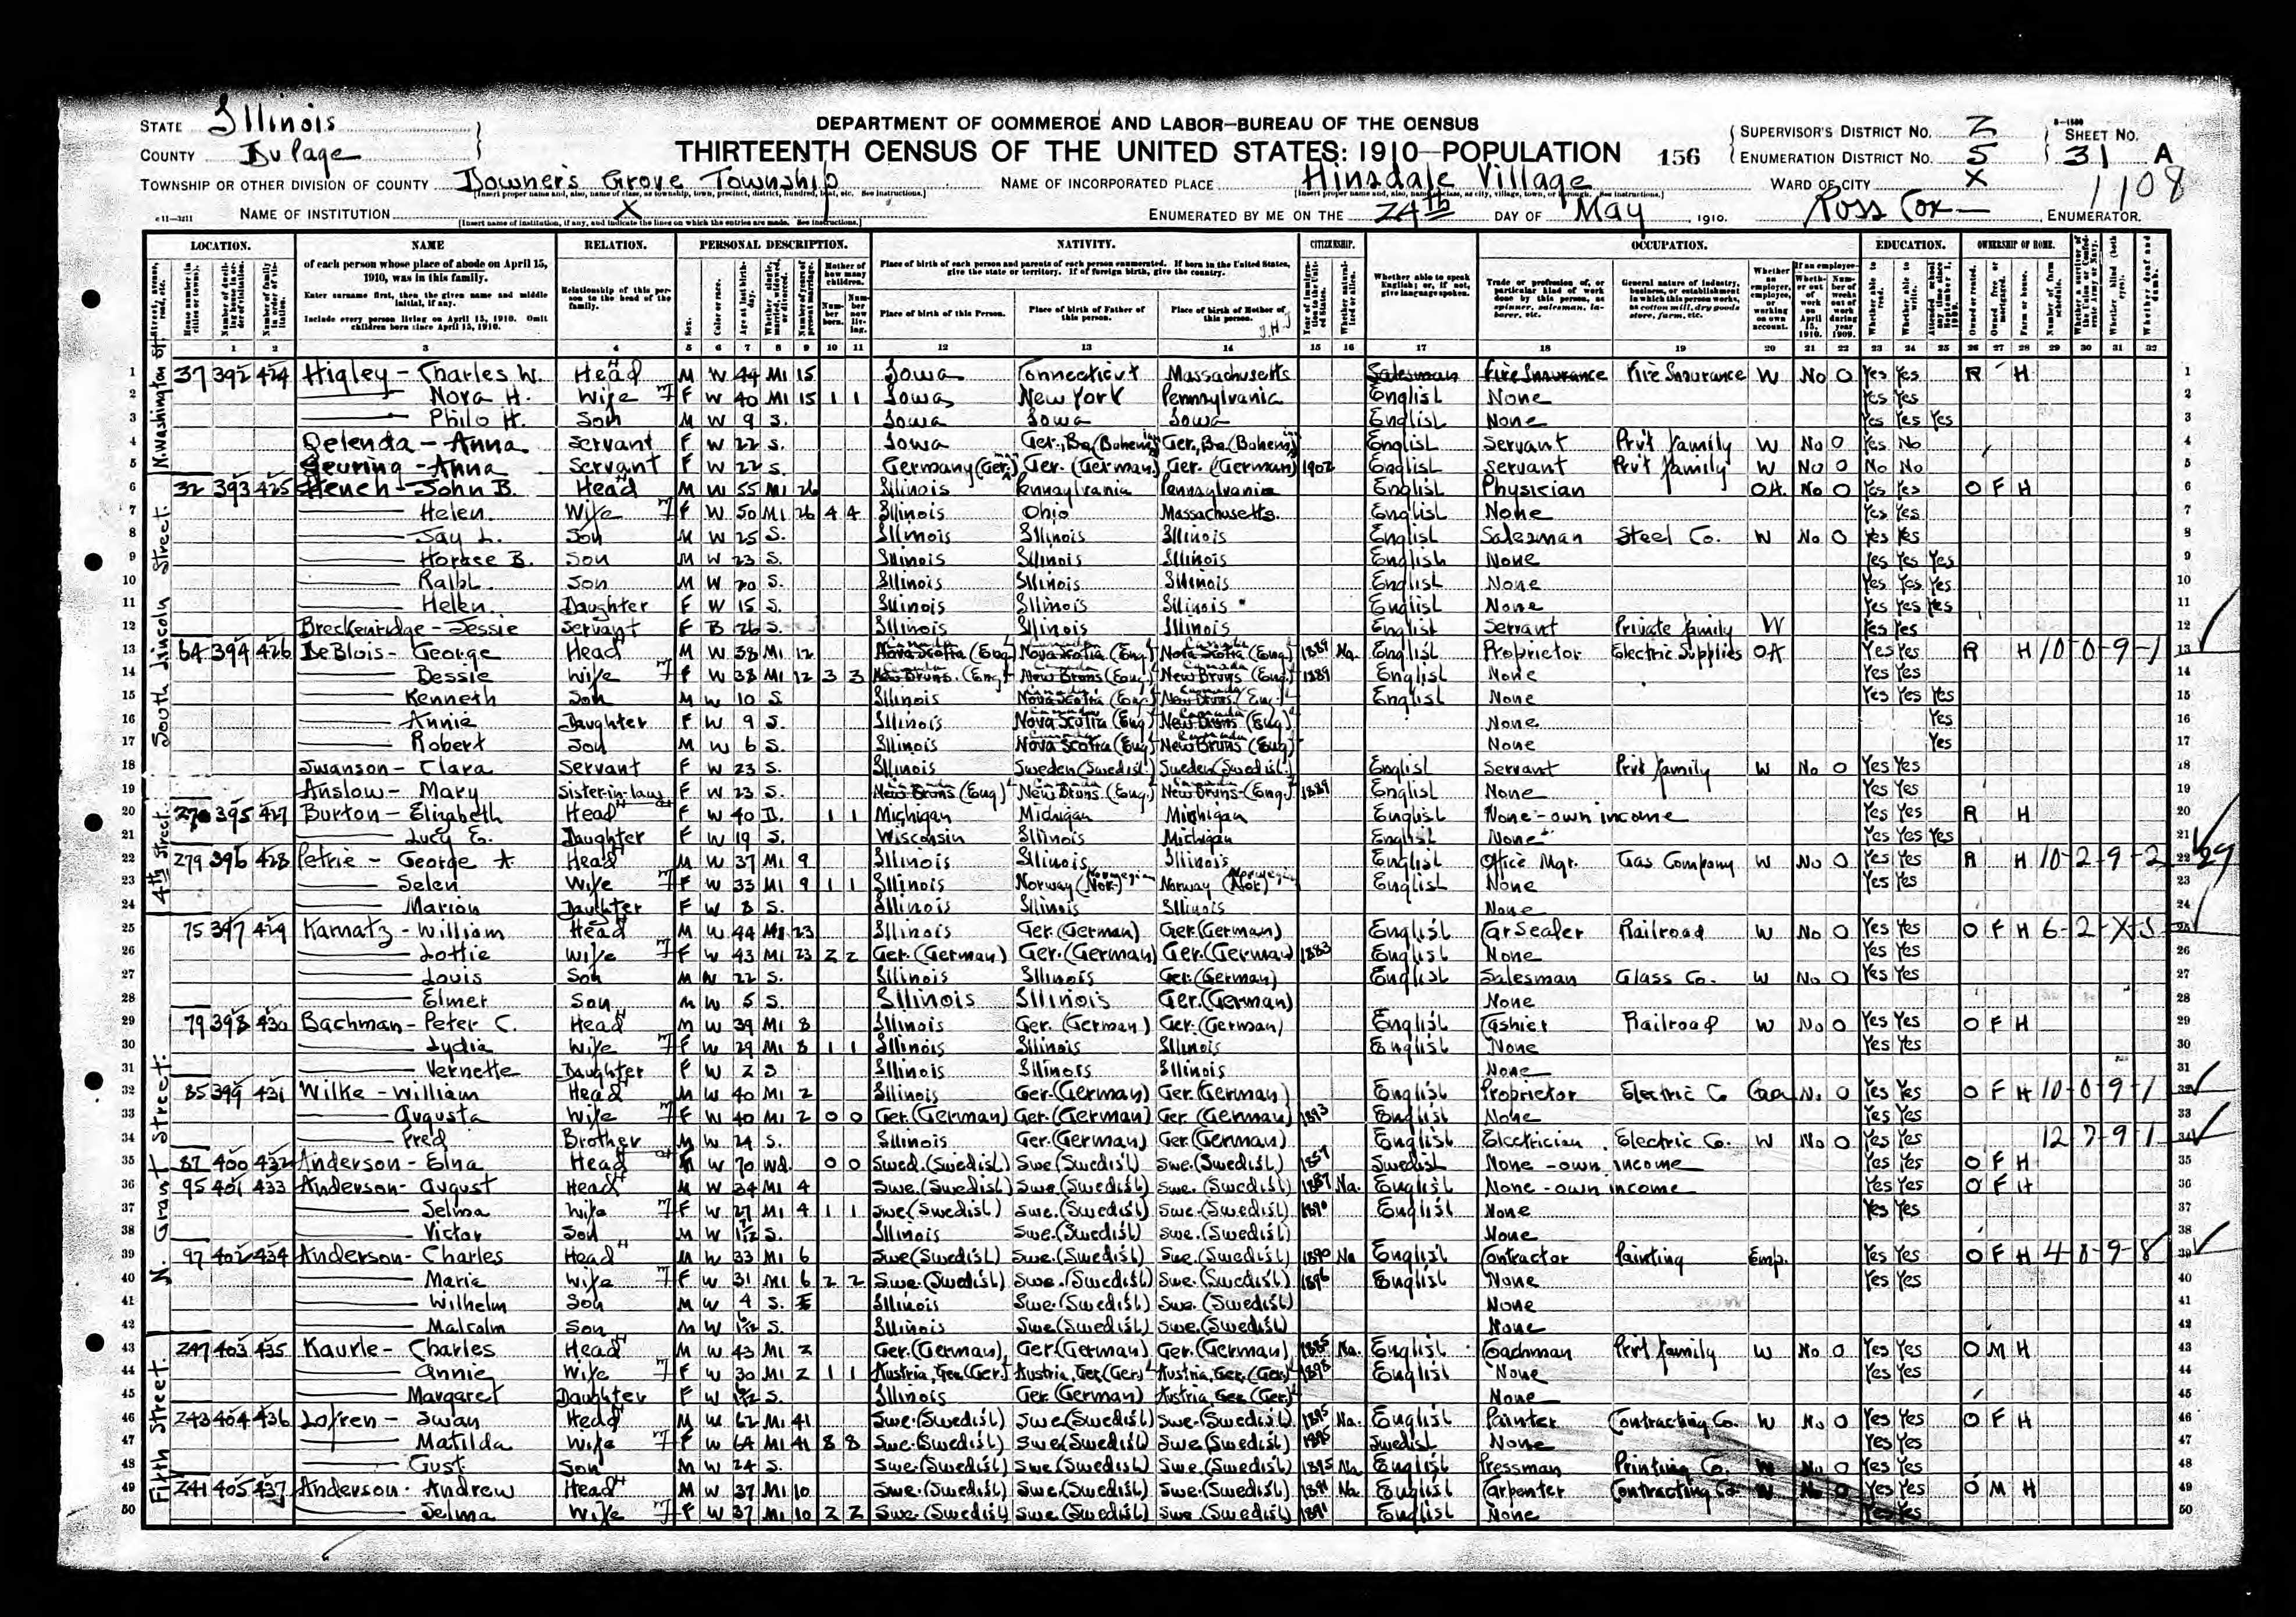 STATE Illinois
COUNTY DuPage
DEPARTMENT OF COMMERCE AND LABOR—BUREAU OF THE CENSUS
THIRTEENTH CENSUS OF THE UNITED STATES: 1910—POPULATION 156
SUPERVISOR'S DISTRICT No. 2
ENUMERATION DISTRICT No. 5
SHEET No. 31 A
1108
TOWNSHIP OR OTHER DIVISION OF COUNTY Downer's Grove Township
NAME OF INCORPORATED PLACE Hinsdale Village
WARD OF CITY X
NAME OF INSTITUTION X
ENUMERATED BY ME ON THE 24th DAY OF May, 1910. Ross Cox — , ENUMERATOR.
LOCATION. NAME RELATION. PERSONAL DESCRIPTION. NATIVITY. CITIZENSHIP. OCCUPATION. EDUCATION. OWNERSHIP OF HOME.
of each person whose place of abode on April 15, 1910, was in this family.
Enter surname first, then the given name and middle initial, if any.
Include every person living on April 15, 1910. Omit children born since April 15, 1910.
Relationship of this person to the head of the family.
Place of birth of each person and parents of each person enumerated. If born in the United States, give the state or territory. If of foreign birth, give the country.
Place of birth of this Person. Place of birth of Father of this person. Place of birth of Mother of this person.
Whether able to speak English; or, if not, give language spoken.
1 2 3 4 5 6 7 8 9 10 11 12 13 14 15 16 17 18 19 20 21 22 23 24 25 26 27 28 29 30 31 32
N Washington St
1 37 392 424 Higley — Charles W. Head M W 44 M1 15 Iowa Connecticut Massachusetts Salesman Fire Insurance Fire Insurance W No 0 Yes Yes R H 1
2 Nora H. Wife F W 40 M1 15 1 1 Iowa New York Pennsylvania English None Yes Yes 2
3 Philo H. Son M W 9 S. Iowa Iowa Iowa English None Yes Yes Yes 3
4 Anna Servant F W 22 S. Iowa English Servant Prvt family W No 0 Yes No 4
5 Anna Servant F W 22 S. Germany (Ger.) Ger. (German) Ger. (German) 1902 English Servant Prvt family W No 0 No No 5
South Lincoln Street
6 32 393 425 Hench — John B. Head M W 55 M1 26 Illinois Pennsylvania Pennsylvania English Physician OA. No 0 Yes Yes O F H 6
7 Helen. Wife F W 50 M1 26 4 4 Illinois Ohio Massachusetts. English None Yes Yes 7
8 Jay L. Son M W 25 S. Illinois Illinois Illinois English Salesman Steel Co. W No 0 Yes Yes 8
9 Horace B. Son M W 23 S. Illinois Illinois Illinois English None Yes Yes Yes 9
10 Ralph. Son M W 20 S. Illinois Illinois Illinois English None Yes Yes Yes 10
11 Helen. Daughter F W 15 S. Illinois Illinois Illinois English None Yes Yes Yes 11
12 Breckenridge — Jessie Servant F B 26 S. Illinois Illinois Illinois English Servant Private family W Yes Yes 12
13 64 394 426 DeBlois — George Head M W 38 M1 12 Nova Scotia (Eng) Nova Scotia (Eng) Nova Scotia (Eng) 1889 Na English Proprietor Electric Supplies OA Yes Yes R H 10-0-9-1 13
14 Bessie Wife F W 38 M1 12 3 3 New Bruns. (Eng) New Bruns (Eng) New Bruns (Eng) 1889 English None Yes Yes 14
15 Kenneth Son M W 10 S Illinois Nova Scotia (Eng.) New Bruns (Eng.) English None Yes Yes Yes 15
16 Annie Daughter F W 9 S. Illinois Nova Scotia (Eng) New Bruns (Eng) None Yes 16
17 Robert Son M W 6 S. Illinois Nova Scotia (Eng) New Bruns (Eng) None Yes 17
18 Swanson — Clara Servant F W 23 S. Illinois Sweden (Swedish) Sweden (Swedish) English Servant Prvt family W No 0 Yes Yes 18
19 Anslow — Mary Sister-in-law F W 23 S. New Bruns (Eng) New Bruns (Eng.) New Bruns (Eng.) 1889 English None Yes Yes 19
4th Street.
20 270 395 427 Burton — Elizabeth Head F W 40 D. 1 1 Michigan Michigan Michigan English None - own income Yes Yes R H 20
21 Lucy E. Daughter F W 19 S. Wisconsin Illinois Michigan English None Yes Yes Yes 21
22 279 396 428 Petrie — George A Head M W 37 M1 9 Illinois Illinois Illinois English Office Mgr. Gas Company W No 0 Yes Yes R H 10-2-9-2 22
23 Selen Wife F W 33 M1 9 1 1 Illinois Norway (Nor.) Norway (Nor.) English None Yes Yes 23
24 Marion Daughter F W 8 S. Illinois Illinois Illinois None 24
N. Grant Street.
25 75 397 429 Kamatz — William Head M W 44 M1 23 Illinois Ger (German) Ger. (German) English Car Sealer Railroad W No 0 Yes Yes O F H 6-2-X-5 25
26 Lottie Wife F W 43 M1 23 2 2 Ger. (German) Ger. (German) Ger. (German) 1883 English None Yes Yes 26
27 Louis Son M W 22 S. Illinois Illinois Ger. (German) English Salesman Glass Co. W No 0 Yes Yes 27
28 Elmer Son M W 5 S. Illinois Illinois Ger. (German) None 28
29 79 398 430 Bachman — Peter C. Head M W 39 M1 8 Illinois Ger. (German) Ger. (German) English Cashier Railroad W No 0 Yes Yes O F H 29
30 Lydia Wife F W 29 M1 8 1 1 Illinois Illinois Illinois English None Yes Yes 30
31 Vernette Daughter F W 2 S Illinois Illinois Illinois None 31
32 85 399 431 Wilke — William Head M W 40 M1 2 Illinois Ger. (German) Ger. (German) English Proprietor Electric Co No 0 Yes Yes O F H 10-0-9-1 32
33 Augusta Wife F W 40 M1 2 0 0 Ger. (German) Ger. (German) Ger. (German) 1893 English None Yes Yes 33
34 Fred Brother M W 24 S. Illinois Ger. (German) Ger. (German) English Electrician Electric Co. W No 0 Yes Yes 12 7-9 1 34
35 87 400 432 Anderson — Elna Head W 70 Wd. 0 0 Swed. (Swedish) Swe (Swedish) Swe. (Swedish) Swedish None - own income Yes Yes O F H 35
36 95 401 433 Anderson — August Head M W 34 M1 4 Swe. (Swedish) Swe. (Swedish) Swe. (Swedish) 1887 Na. English None - own income Yes Yes O F H 36
37 Selma Wife F W 27 M1 4 1 1 Swe (Swedish) Swe. (Swedish) Swe. (Swedish) 1890 English None Yes Yes 37
38 Victor Son M W S. Illinois Swe. (Swedish) Swe. (Swedish) None 38
39 97 402 434 Anderson — Charles Head M W 33 M1 6 Swe (Swedish) Swe. (Swedish) Swe. (Swedish) 1890 Na English Contractor Painting Emp. Yes Yes O F H 4-8-9-8 39
40 Marie Wife F W 31 M1 6 2 2 Swe. (Swedish) Swe. (Swedish) Swe. (Swedish) 1896 English None Yes Yes 40
41 Wilhelm Son M W 4 S. Illinois Swe. (Swedish) Swe. (Swedish) None 41
42 Malcolm Son M W S. Illinois Swe (Swedish) Swe. (Swedish) None 42
Fifth Street.
43 247 403 435 Kaurle — Charles Head M W 43 M1 2 Ger. (German) Ger. (German) Ger. (German) 1885 Na. English Coachman Prvt family W No 0 Yes Yes O M H 43
44 Annie Wife F W 30 M1 2 1 1 Austria, Ger. (Ger.) Austria, Ger. (Ger.) Austria, Ger. (Ger.) 1898 English None Yes Yes 44
45 Margaret Daughter F W S. Illinois Ger. (German) Austria Ger. (Ger.) None 45
46 243 404 436 Lofren — Swan Head M W 62 M1 41 Swe. (Swedish) Swe (Swedish) Swe. (Swedish) 1895 Na. English Painter Contracting Co. W No 0 Yes Yes O F H 46
47 Matilda Wife F W 64 M1 41 8 8 Swe. (Swedish) Swe (Swedish) Swe (Swedish) 1895 Swedish None Yes Yes 47
48 Gust Son M W 24 S. Swe. (Swedish) Swe (Swedish) Swe. (Swedish) 1895 Na English Pressman Printing Co. W No 0 Yes Yes 48
49 241 405 437 Anderson. Andrew Head M W 37 M1 10 Swe. (Swedish) Swe. (Swedish) Swe. (Swedish) 1891 Na English Carpenter Contracting Co. W No 0 Yes Yes O M H 49
50 Selma Wife F W 37 M1 10 2 2 Swe. (Swedish) Swe (Swedish) Swe. (Swedish) 1891 English None Yes Yes 50